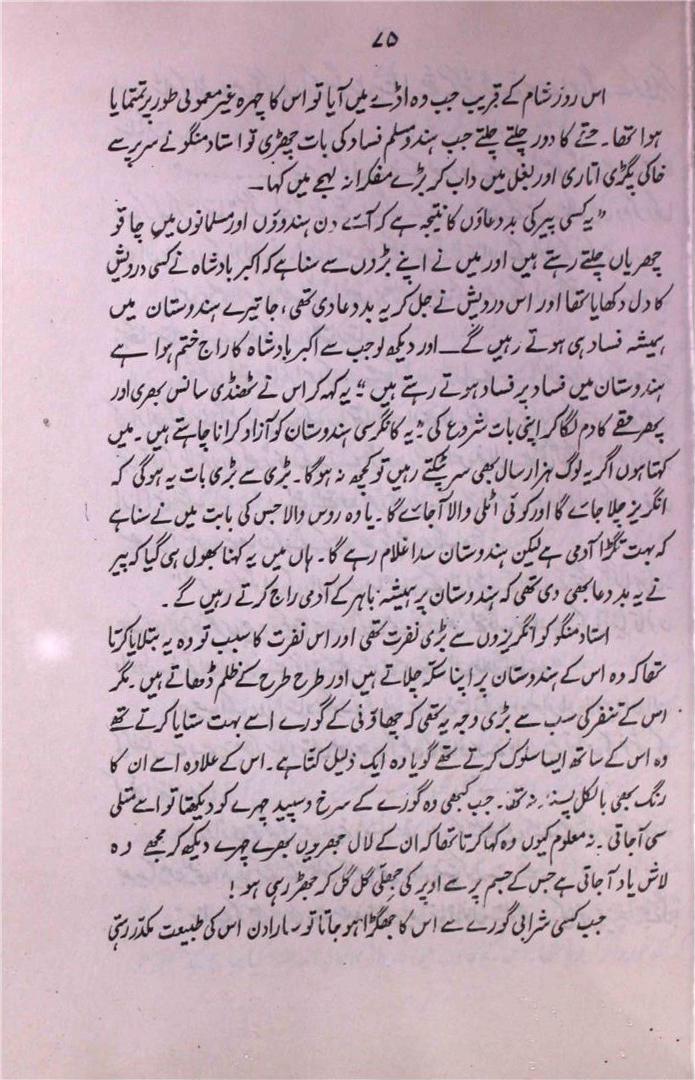 ۷۵
اس روز شام کے قریب جب وہ اڈے میں آیا تو اس کا چہرہ غیر معمولی طور پر تمتمایا
ہوا تھا۔ حقے کا دور چلتے چلتے جب ہندو مسلم فساد کی بات چھڑی تو استاد منگو نے سر پر سے
خاکی پگڑی اتاری اور بغل میں داب کر بڑے مفکرانہ لہجے میں کہا۔
”یہ کسی پیر کی بددعاؤں کا نتیجہ ہے کہ آئے دن ہندوؤں اور مسلمانوں میں چاقو
چھریاں چلتے رہتے ہیں اور میں نے اپنے بڑوں سے سنا ہے کہ اکبر بادشاہ نے کسی درویش
کا دل دکھایا تھا اور اس درویش نے جل کر یہ بددعا دی تھی، جا تیرے ہندوستان میں
ہمیشہ فساد ہی ہوتے رہیں گے۔ اور دیکھ لو جب سے اکبر بادشاہ کا راج ختم ہوا ہے
ہندوستان میں فساد پر فساد ہوتے رہتے ہیں“ یہ کہہ کر اس نے ٹھنڈی سانس بھری اور
پھر حقے کا دم لگا کر اپنی بات شروع کی ”یہ کانگرسی ہندوستان کو آزاد کرانا چاہتے ہیں۔ میں
کہتا ہوں اگر یہ لوگ ہزار سال بھی سر پٹکتے رہیں تو کچھ نہ ہوگا۔ بڑی سے بڑی بات یہ ہوگی کہ
انگریز چلا جائے گا اور کوئی اٹلی والا آجائے گا۔ یا وہ روس والا جس کی بابت میں نے سنا ہے
کہ بہت تگڑا آدمی ہے لیکن ہندوستان سدا غلام رہے گا۔ ہاں میں یہ کہنا بھول ہی گیا کہ پیر
نے یہ بددعا بھی دی تھی کہ ہندوستان پر ہمیشہ باہر کے آدمی راج کرتے رہیں گے۔
استاد منگو کو انگریزوں سے بڑی نفرت تھی اور اس نفرت کا سبب تو وہ یہ بتلایا کرتا
تھا کہ وہ اس کے ہندوستان پر اپنا سکہ چلاتے ہیں اور طرح طرح کے ظلم ڈھاتے ہیں۔ مگر
اس کے تنفر کی سب سے بڑی وجہ یہ تھی کہ چھاؤنی کے گورے اسے بہت ستایا کرتے تھے
وہ اس کے ساتھ ایسا سلوک کرتے تھے گویا وہ ایک ذلیل کتا ہے۔ اس کے علاوہ اسے ان کا
رنگ بھی بالکل پسند نہ تھا۔ جب کبھی وہ گورے کے سرخ و سپید چہرے کو دیکھتا تو اسے متلی
سی آجاتی۔ نہ معلوم کیوں وہ کہا کرتا تھا کہ ان کے لال جھریوں بھرے چہرے دیکھ کر مجھے وہ
لاش یاد آجاتی ہے جس کے جسم پر سے اوپر کی جھلی گل گل کر جھڑ رہی ہو!
جب کسی شرابی گورے سے اس کا جھگڑا ہو جاتا تو سارا دن اس کی طبیعت مکدر رہتی